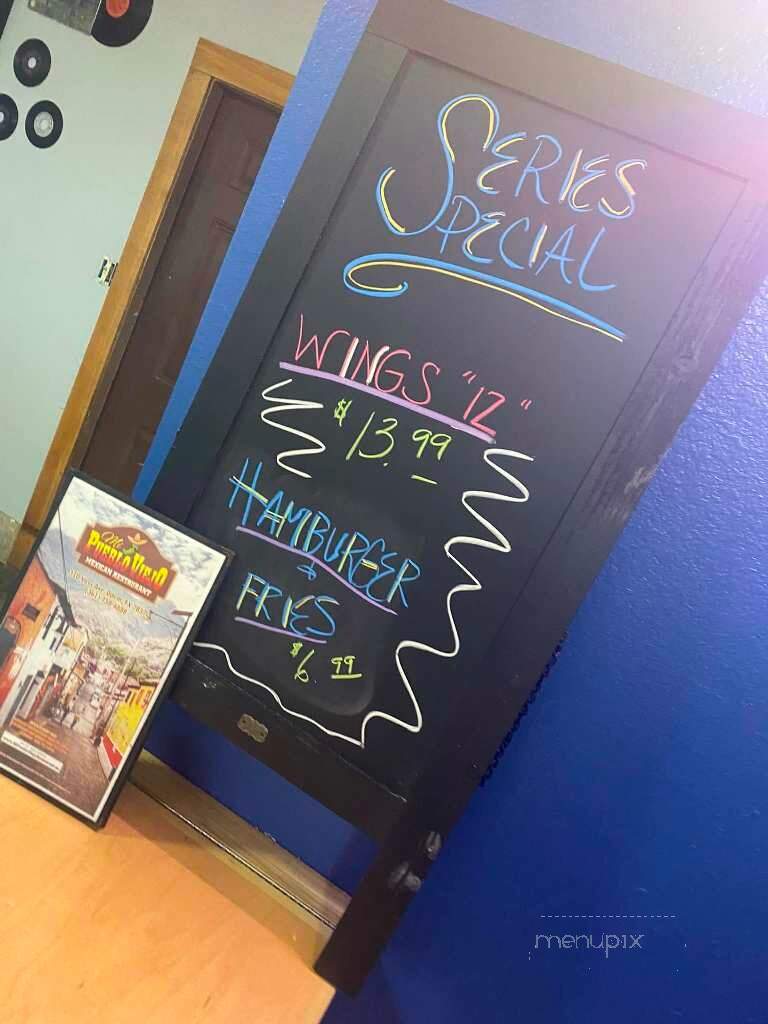 SERIES
SPECIAL
WINGS "12"
$13.99
HAMBURGER
+
FRIES
$6.99
Mi
PUEBLO VIEJO
MEXICAN RESTAURANT
menupix